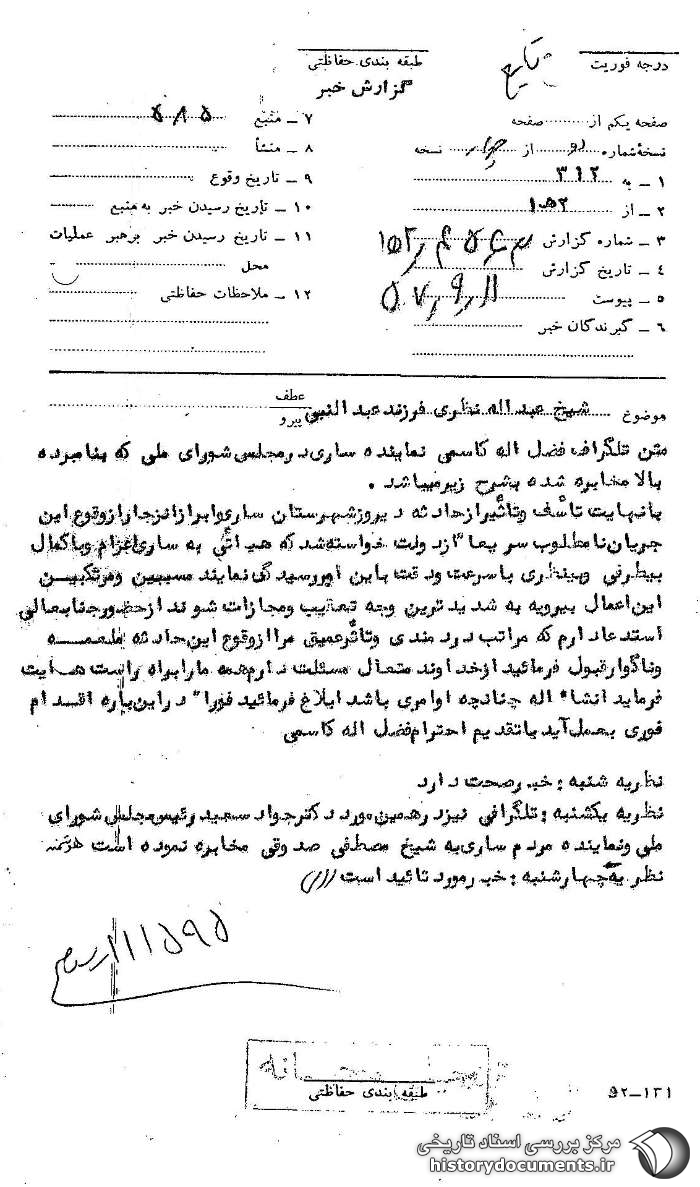 درجه فوریت
طبقه بندی حفاظتی
گزارش خبر
صفحه یکم از صفحه
نسخهٔ شماره از نسخه
۱ ـ به ۳۱۲
۲ ـ از ۱۵۲
۳ ـ شماره گزارش
۴ ـ تاریخ گزارش ۵۷٫۹٫۱۱
۵ ـ پیوست
۶ ـ گیرندگان خبر
۷ ـ منبع ۵۸۵
۸ ـ منشأ
۹ ـ تاریخ وقوع
۱۰ ـ تاریخ رسیدن خبر به منبع
۱۱ ـ تاریخ رسیدن خبر برهبر عملیات
محل
۱۲ ـ ملاحظات حفاظتی
موضوع شیخ عبداله نظری فرزند عبدالنبی
عطف
پیرو
متن تلگراف فضل اله کاسمی نماینده ساری در مجلس شورای ملی که بنامبرده
بالا مخابره شده بشرح زیر میباشد .
بانهایت تأسف وتأثیر از حادثه دیروز شهرستان ساری وابراز انزجار از وقوع این
جریان نامطلوب سریعا" از دولت خواسته شد که هیأتی به ساری اعزام وباکمال
بیطرفی وبینظری باسرعت ودقت باین امر رسیدگی نمایند مسببین ومرتکبین
این اعمال بیرویه به شدیدترین وجه تعقیب ومجازات شوند از حضور جنابعالی
استدعا دارم که مراتب دردمندی وتأثر عمیق مرا از وقوع این حادثه
وناگوار قبول فرمائید از خداوند متعال مسئلت دارم همه مارا براه راست هدایت
فرماید انشاء اله چنانچه اوامری باشد ابلاغ فرمائید فورا" در این باره اقدام
فوری بعمل آید با تقدیم احترام فضل اله کاسمی
نظریه شنبه : خبر صحت دارد
نظریه یکشنبه : تلگرافی نیز در همین مورد دکتر جواد سعید رئیس مجلس شورای
ملی ونماینده مردم ساری به شیخ مصطفی صدوقی مخابره نموده است
نظریه چهارشنبه : خبر مورد تائید است
۱۱۱۵۹۵
طبقه بندی حفاظتی
۹۲-۱۳۱
مرکز بررسی اسناد تاریخی
historydocuments.ir